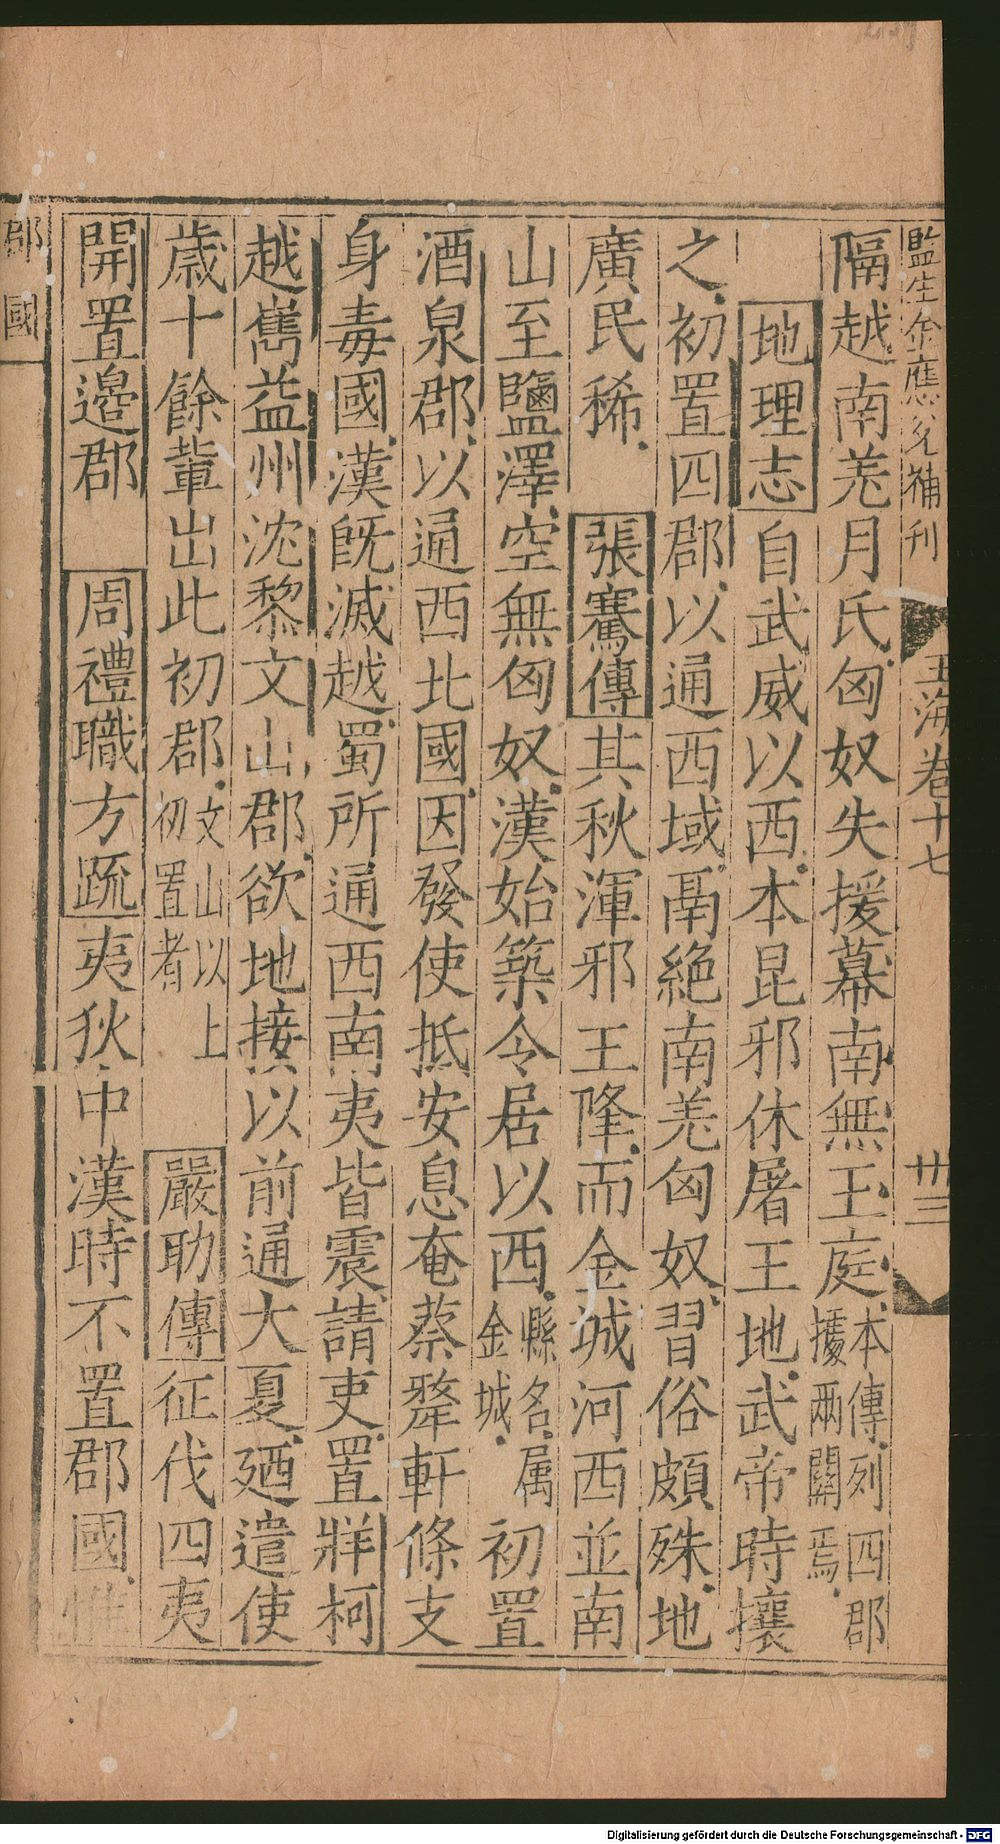 監生金應奎補刊
玉海卷十七
卅三
隔越南羌月氏匈奴失援幕南無王庭本傳列四郡據兩關焉
地理志自武威以西本昆邪休屠王地武帝時攘
之初置四郡以通西域鬲絕南羌匈奴習俗頗殊地
廣民稀 張騫傳其秋渾邪王降而金城河西並南
山至鹽澤空無匈奴漢始築令居以西縣名属金城初置
酒泉郡以通西北國因發使抵安息奄蔡犛軒條支
身毒國漢旣滅越蜀所通西南夷皆震請吏置牂柯
越嶲益州沈黎文山郡欲地接以前通大夏廼遣使
歲十餘輩出此初郡文山以上初置者 嚴助傳征伐四夷
開置邊郡 周禮職方疏夷狄中漢時不置郡國惟
郡國
Digitalisierung gefördert durch die Deutsche Forschungsgemeinschaft - DFG